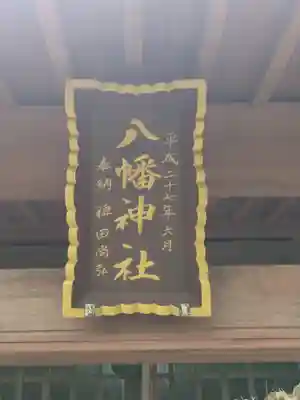 平成二十七年六月
八幡神社
奉納 种田尚弘